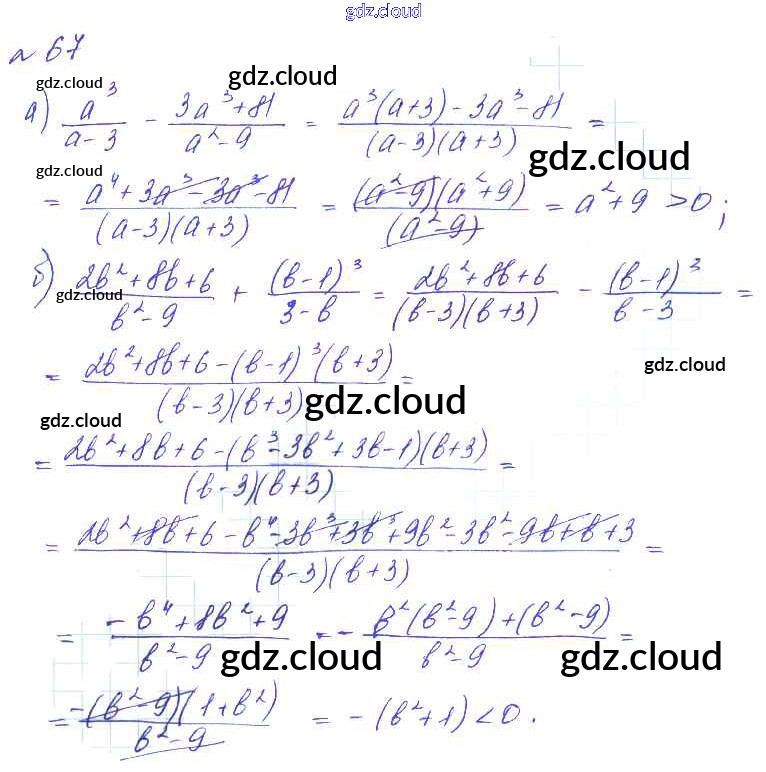 gdz.cloud
№ 67
gdz.cloud gdz.cloud
а) a³/(a-3) - (3a³+81)/(a²-9) = (a³(a+3)-3a³-81)/((a-3)(a+3)) =
gdz.cloud gdz.cloud
= (a⁴+3a³-3a³-81)/((a-3)(a+3)) = ((a²-9)(a²+9))/(a²-9) = a²+9 >0;
б) (2b²+8b+6)/(b²-9) + (b-1)³/(3-b) = (2b²+8b+6)/((b-3)(b+3)) - (b-1)³/(b-3) =
gdz.cloud gdz.cloud
= (2b²+8b+6-(b-1)³(b+3))/((b-3)(b+3)) =
gdz.cloud
gdz.cloud gdz.cloud
= (2b²+8b+6-(b³-3b²+3b-1)(b+3))/((b-3)(b+3)) =
= (2b²+8b+6-b⁴-3b³+3b³+9b²-3b²-9b+b+3)/((b-3)(b+3)) =
= (-b⁴+8b²+9)/(b²-9) = - (b²(b²-9)+(b²-9))/(b²-9) =
gdz.cloud gdz.cloud
= (-(b²-9)(1+b²))/(b²-9) = -(b²+1)<0.